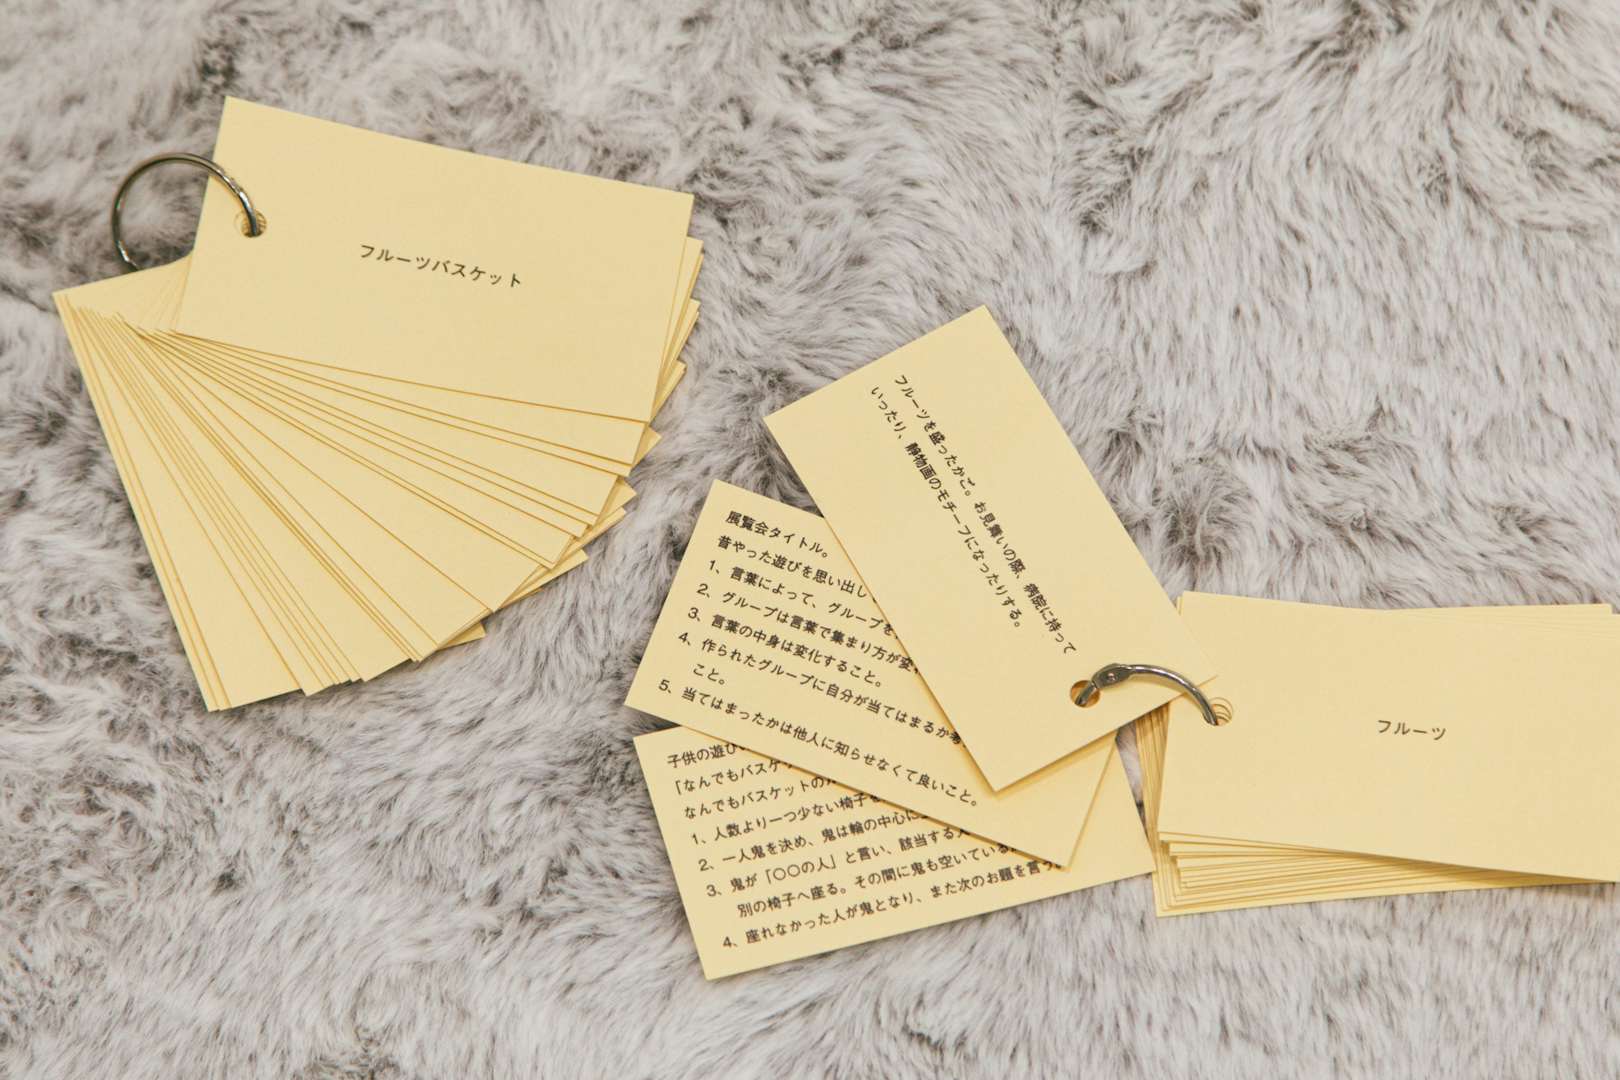 フルーツバスケット
フルーツを盛ったかご。お見舞いの際、病院に持って
いったり、静物画のモチーフになったりする。
展覧会タイトル。
昔やった遊びを思い出し
1、言葉によって、グループを
2、グループは言葉で集まり方が変
3、言葉の中身は変化すること。
4、作られたグループに自分が当てはまるか考
こと。
5、当てはまったかは他人に知らせなくて良いこと。
子供の遊び
「なんでもバスケッ
なんでもバスケットの
1、人数より一つ少ない椅子を
2、一人鬼を決め、鬼は輪の中心に
3、鬼が「〇〇の人」と言い、該当する人
別の椅子へ座る。その間に鬼も空いている
4、座れなかった人が鬼となり、また次のお題を言う
フルーツ